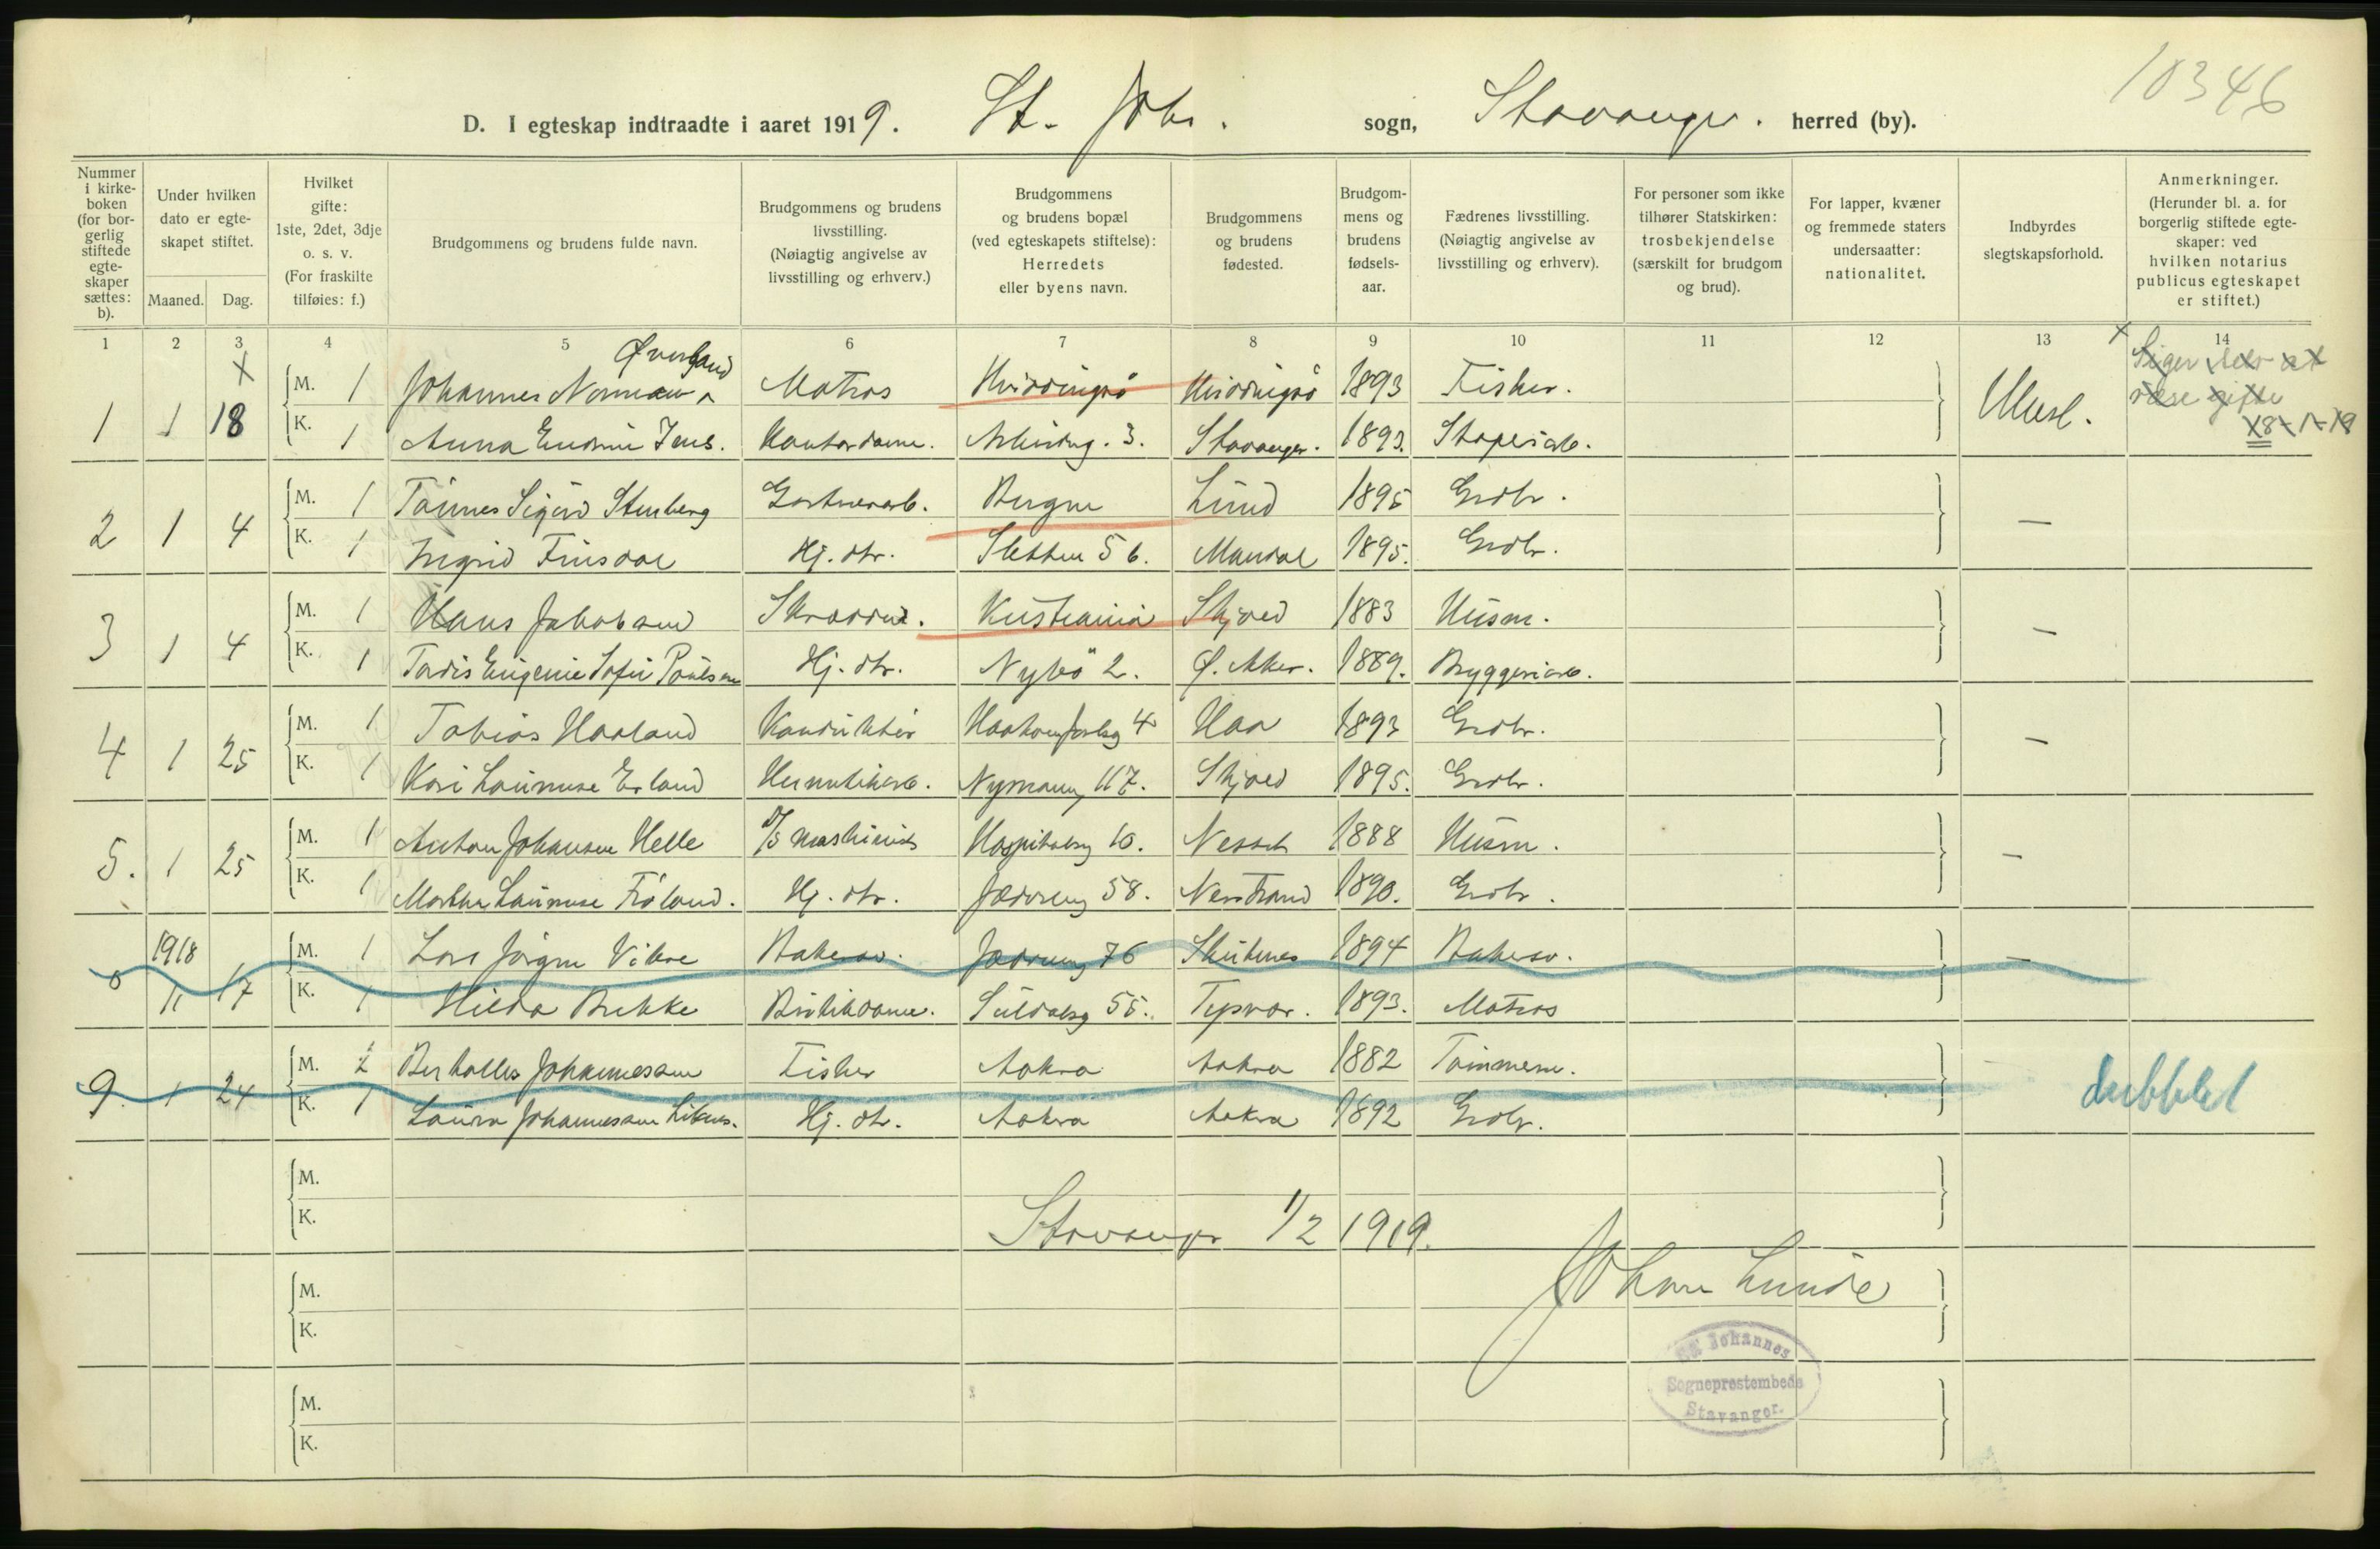 10346
D. I egteskap indtraadte i aaret 1919. St. Johs. sogn, Stavanger. herred (by).
Nummer i kirkeboken (for borgerlig stiftede egteskaper sættes: b).
Under hvilken dato er egteskapet stiftet.
Maaned. Dag.
Hvilket gifte: 1ste, 2det, 3dje o. s. v. (For fraskilte tilføies: f.)
Brudgommens og brudens fulde navn.
Brudgommens og brudens livsstilling. (Nøiagtig angivelse av livsstilling og erhverv.)
Brudgommens og brudens bopæl (ved egteskapets stiftelse): Herredets eller byens navn.
Brudgommens og brudens fødested.
Brudgommens og brudens fødselsaar.
Fædrenes livsstilling. (Nøiagtig angivelse av livsstilling og erhverv).
For personer som ikke tilhører Statskirken: trosbekjendelse (særskilt for brudgom og brud).
For lapper, kvæner og fremmede staters undersaatter: nationalitet.
Indbyrdes slegtskapsforhold.
Anmerkninger. (Herunder bl. a. for borgerlig stiftede egteskaper: ved hvilken notarius publicus egteskapet er stiftet.)
1 2 3 4 5 6 7 8 9 10 11 12 13 14
X Øverland
M. 1 Johannes Norman Matros Hviddingsö Hviddingsö 1893 Fisker.
1 1 18 K. 1 Anna Jens. Kontordame. 3. Stavanger. 1893.
18-1-19
M. 1 Tönnes Sigurd Stenberg Gartnerarb. Bergen Lund 1895 Grdbr.
2 1 4 K. 1 Ingrid Finsdal Hj. dtr. Sletten 56. Mandal 1895. Grdbr. —
M. 1 Hans Jakobsen Skrædder. Kristiania Skjold 1883 Husm.
3 1 4 K. 1 Tordis Eugenie Sofie Paulsen Hj. dtr. Nybö 2. Ø. Aker. 1889. Bryggeriarb. —
M. 1 Tobias Haaland Konduktör 4 Haa 1893 Grdbr.
4 1 25 K. 1 Kari Laurense Erland Hermetikarb. Nymansv 117. Skjold 1895. Grdbr. —
M. 1 Anton Johansen Helle D/S maskinist Hospitalsg 10. 1888 Husm.
5. 1 25 K. 1 Martha Laurense Fröland. Hj. dtr. Jæderveg 58. Nerstrand 1890. Grdbr. —
1918 M. 1 Lars Jörgen Vikre Bakersv. Jæderveg 76 Skudenes 1894 Bakersv.
11 17 K. 1 Hilda Brekke Butikdame. Suldalsg 55. Tysvær. 1893. Matros —
M. 2 Johannessen Fisker Aakra Aakra 1882 Tömmerm.
9. 1 24 K. 1 Laura Johannessen Liknes. Hj. dtr. Aakra Aakra 1892 Grdbr. dubblet
M.
K.
Stavanger 1/2 1919.
M. Johan Lunde
K.
St. Johannes
Sogneprestembede
Stavanger.
M.
K.